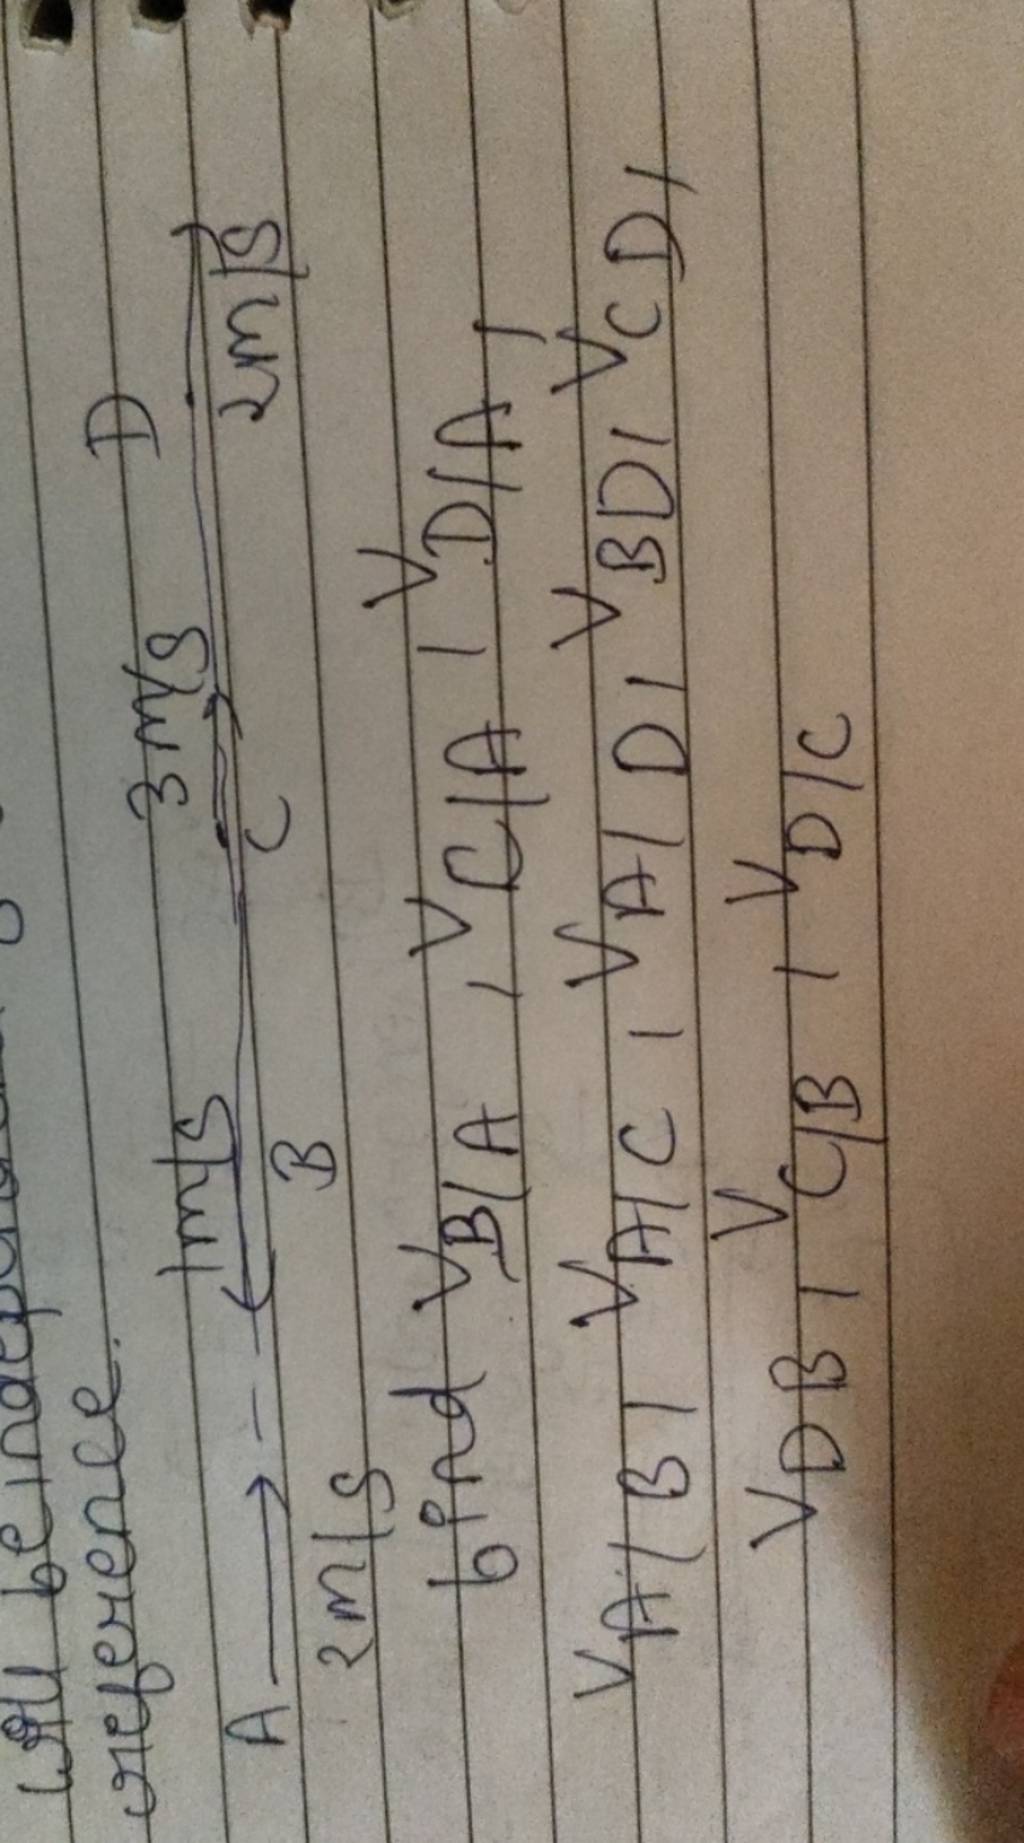 will be independent
reference.
D
1m/s 3m/s
A B C
2m/s 2m/s
find VB/A, VC/A, VD/A,
VA/B, VA/C, VA/D, VBD, VCD,
VDB, VC/B, VD/C